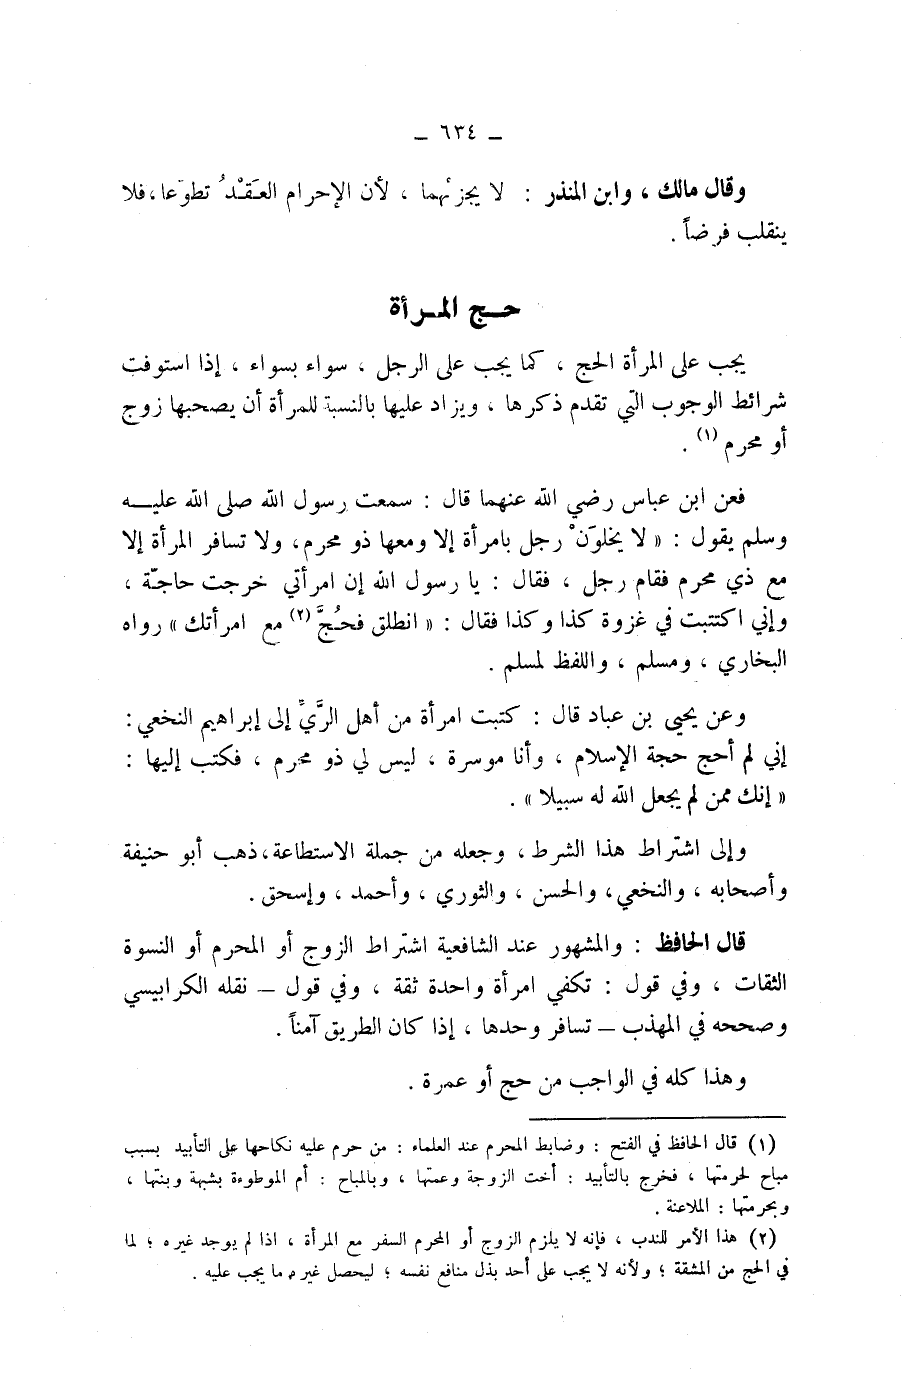 – ٦٣٤ –
وقال مالك ، وابن المنذر : لا يجزئهما ، لأن الإحرام العَقْدُ تطوّعا ، فلا
ينقلب فرضاً .
حـج المـرأة
يجب على المرأة الحج ، كما يجب على الرجل ، سواء بسواء ، إذا استوفت
شرائط الوجوب التي تقدم ذكرها ، ويزاد عليها بالنسبة للمرأة أن يصحبها زوج
أو محرم (١) .
فعن ابن عباس رضي الله عنهما قال : سمعت رسول الله صلى الله عليـــه
وسلم يقول : « لا يخلوَنْ رجل بامرأة إلا ومعها ذو محرم، ولا تسافر المرأة إلا
مع ذي محرم فقام رجل ، فقال : يا رسول الله إن امرأتي خرجت حاجّة ،
وإني اكتتبت في غزوة كذا وكذا فقال : « انطلق فحُجَّ (٢) مع امرأتك » رواه
البخاري ، ومسلم ، واللفظ لمسلم .
وعن يحيى بن عباد قال : كتبت امرأة من أهل الرَّيّ إلى إبراهيم النخعي :
إني لم أحج حجة الإسلام ، وأنا موسرة ، ليس لي ذو محرم ، فكتب إليها :
« إنك ممن لم يجعل الله له سبيلا » .
وإلى اشتراط هذا الشرط ، وجعله من جملة الاستطاعة ، ذهب أبو حنيفة
وأصحابه ، والنخعي ، والحسن ، والثوري ، وأحمد ، وإسحق .
قال الحافظ : والمشهور عند الشافعية اشتراط الزوج أو المحرم أو النسوة
الثقات ، وفي قول : تكفي امرأة واحدة ثقة ، وفي قول – نقله الكرابيسي
وصححه في المهذب – تسافر وحدها ، إذا كان الطريق آمناً .
وهذا كله في الواجب من حج أو عمرة .
(١) قال الحافظ في الفتح : وضابط المحرم عند العلماء : من حرم عليه نكاحها على التأبيد بسبب
مباح لحرمتها ، فخرج بالتأبيد : أخت الزوجة وعمتها ، وبالمباح : أم الموطوءة بشبهة وبنتها ،
وبحرمتها : الملاعنة .
(٢) هذا الأمر للندب ، فإنه لا يلزم الزوج أو المحرم السفر مع المرأة ، اذا لم يوجد غيره ؛ لما
في الحج من المشقة ؛ ولأنه لا يجب على أحد بذل منافع نفسه ؛ ليحصل غيره ما يجب عليه .